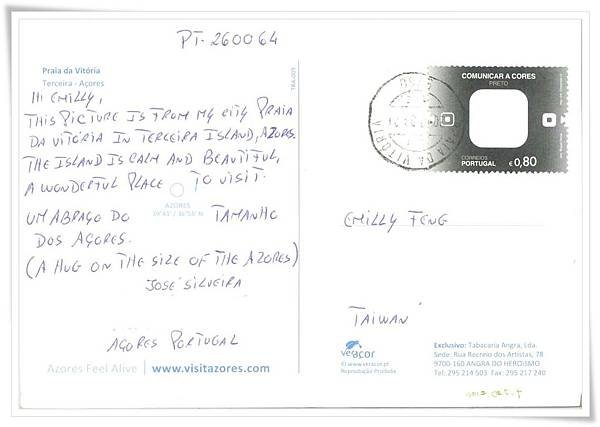 PT-260064
Praia da Vitória
Terceira - Açores
TRA-009
HI EMILLY,
THIS PICTURE IS FROM MY CITY PRAIA
DA VITÓRIA IN TERCEIRA ISLAND, AZORES.
THE ISLAND IS CALM AND BEAUTIFUL,
A WONDERFUL PLACE TO VISIT.
AZORES
UM ABRAÇO DO TAMANHO
DOS AÇORES.
(A HUG ON THE SIZE OF THE AZORES)
JOSÉ SILVEIRA
AÇORES PORTUGAL
Azores Feel Alive | www.visitazores.com
COMUNICAR A CORES
PRETO
CORREIOS
PORTUGAL €0,80
PRAIA DA VITORIA
EMILLY FENG
TAIWAN
veracor
© www.veracor.pt
Reprodução Proibida
Exclusivo: Tabacaria Angra, Lda.
Sede: Rua Recreio dos Artistas, 78
9700-160 ANGRA DO HEROÍSMO
Tel: 295 214 503 Fax: 295 217 240